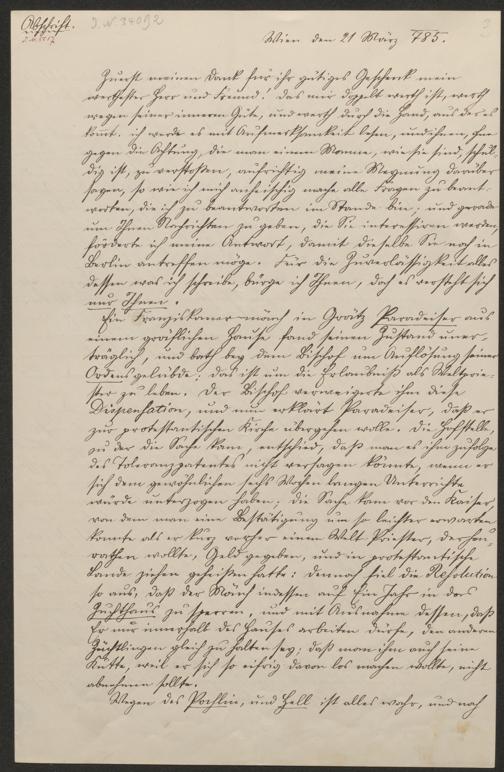 Abschrift.
J. N. 34092
Wien den 21 März 785.
Zuerst meinen Dank für ihr gütiges Geschenk mein
werthester Herr und Freund. Das mir doppelt werth ist, werth
wegen seiner inneren Güte, und werth durch die Hand, aus der es
kömmt. ich werde es mit Aufmerksamkeit lesen, und ihnen, ohne
gegen die Achtung, die man einem Manne, wie sie sind, schul-
dig ist, zu verstoßen, aufrichtig meine Meynung darüber
sagen, so wie ich mich anheischig mache alle Fragen zu beant-
worten, die ich zu beantworten im Stande bin, und gerade
um Ihnen Nachrichten zu geben, die Sie interessiren werden,
förderte ich meine Antwort, damit dieselbe Sie noch in
Berlin antreffen möge. Für die Zuverlässigkeit alles
dessen was ich schreibe, bürge ich Ihnen, doch es versteht sich
nur Ihnen.
Ein Franziskanermönch in Grätz Paradeiser aus
einem gräflichen Hause fand seinen Zustand uner-
träglich, und bath bey dem Bischof um Auflösung seiner
Ordensgelübde: das ist um die Erlaubniß als Weltprie-
ster zu leben. Der Bischof verweigerte ihm diese
Dispensation, und nun erklärt Paradeiser, daß er
zur protestantischen Kirche übergehen wolle. Die Hofstelle,
zu der die Sache kam, entschied, daß man es ihm zufolge
des Toleranzpatentes nicht versagen könnte, wenn er
sich dem gewöhnlichen sechs Wochen langen Unterrichte
würde unterzogen haben; die Sache kam vor den Kaiser,
von dem man eine Bestätigung um so leichter erwarten
konnte als er kurz vorher einem Welt Priester, der heu-
rathen wollte, Geld gegeben, und in protestantische
Lande ziehen geheißen hatte: dennoch fiel die Resolution
so aus, daß der Mönch indessen auf Ein Jahr in das
Zuchthaus zu sperren, und mit Ausnahme dessen, daß
Er nur innerhalb des Hauses arbeiten dürfe, den andern
Züchtlingen gleich zu halten sey; daß man ihm auch seine
Kutte, weil er sich so eifrig davon los machen wollte, nicht
abnehmen sollte.
Wegen des Pochlin, und Hell ist alles wahr, und noch